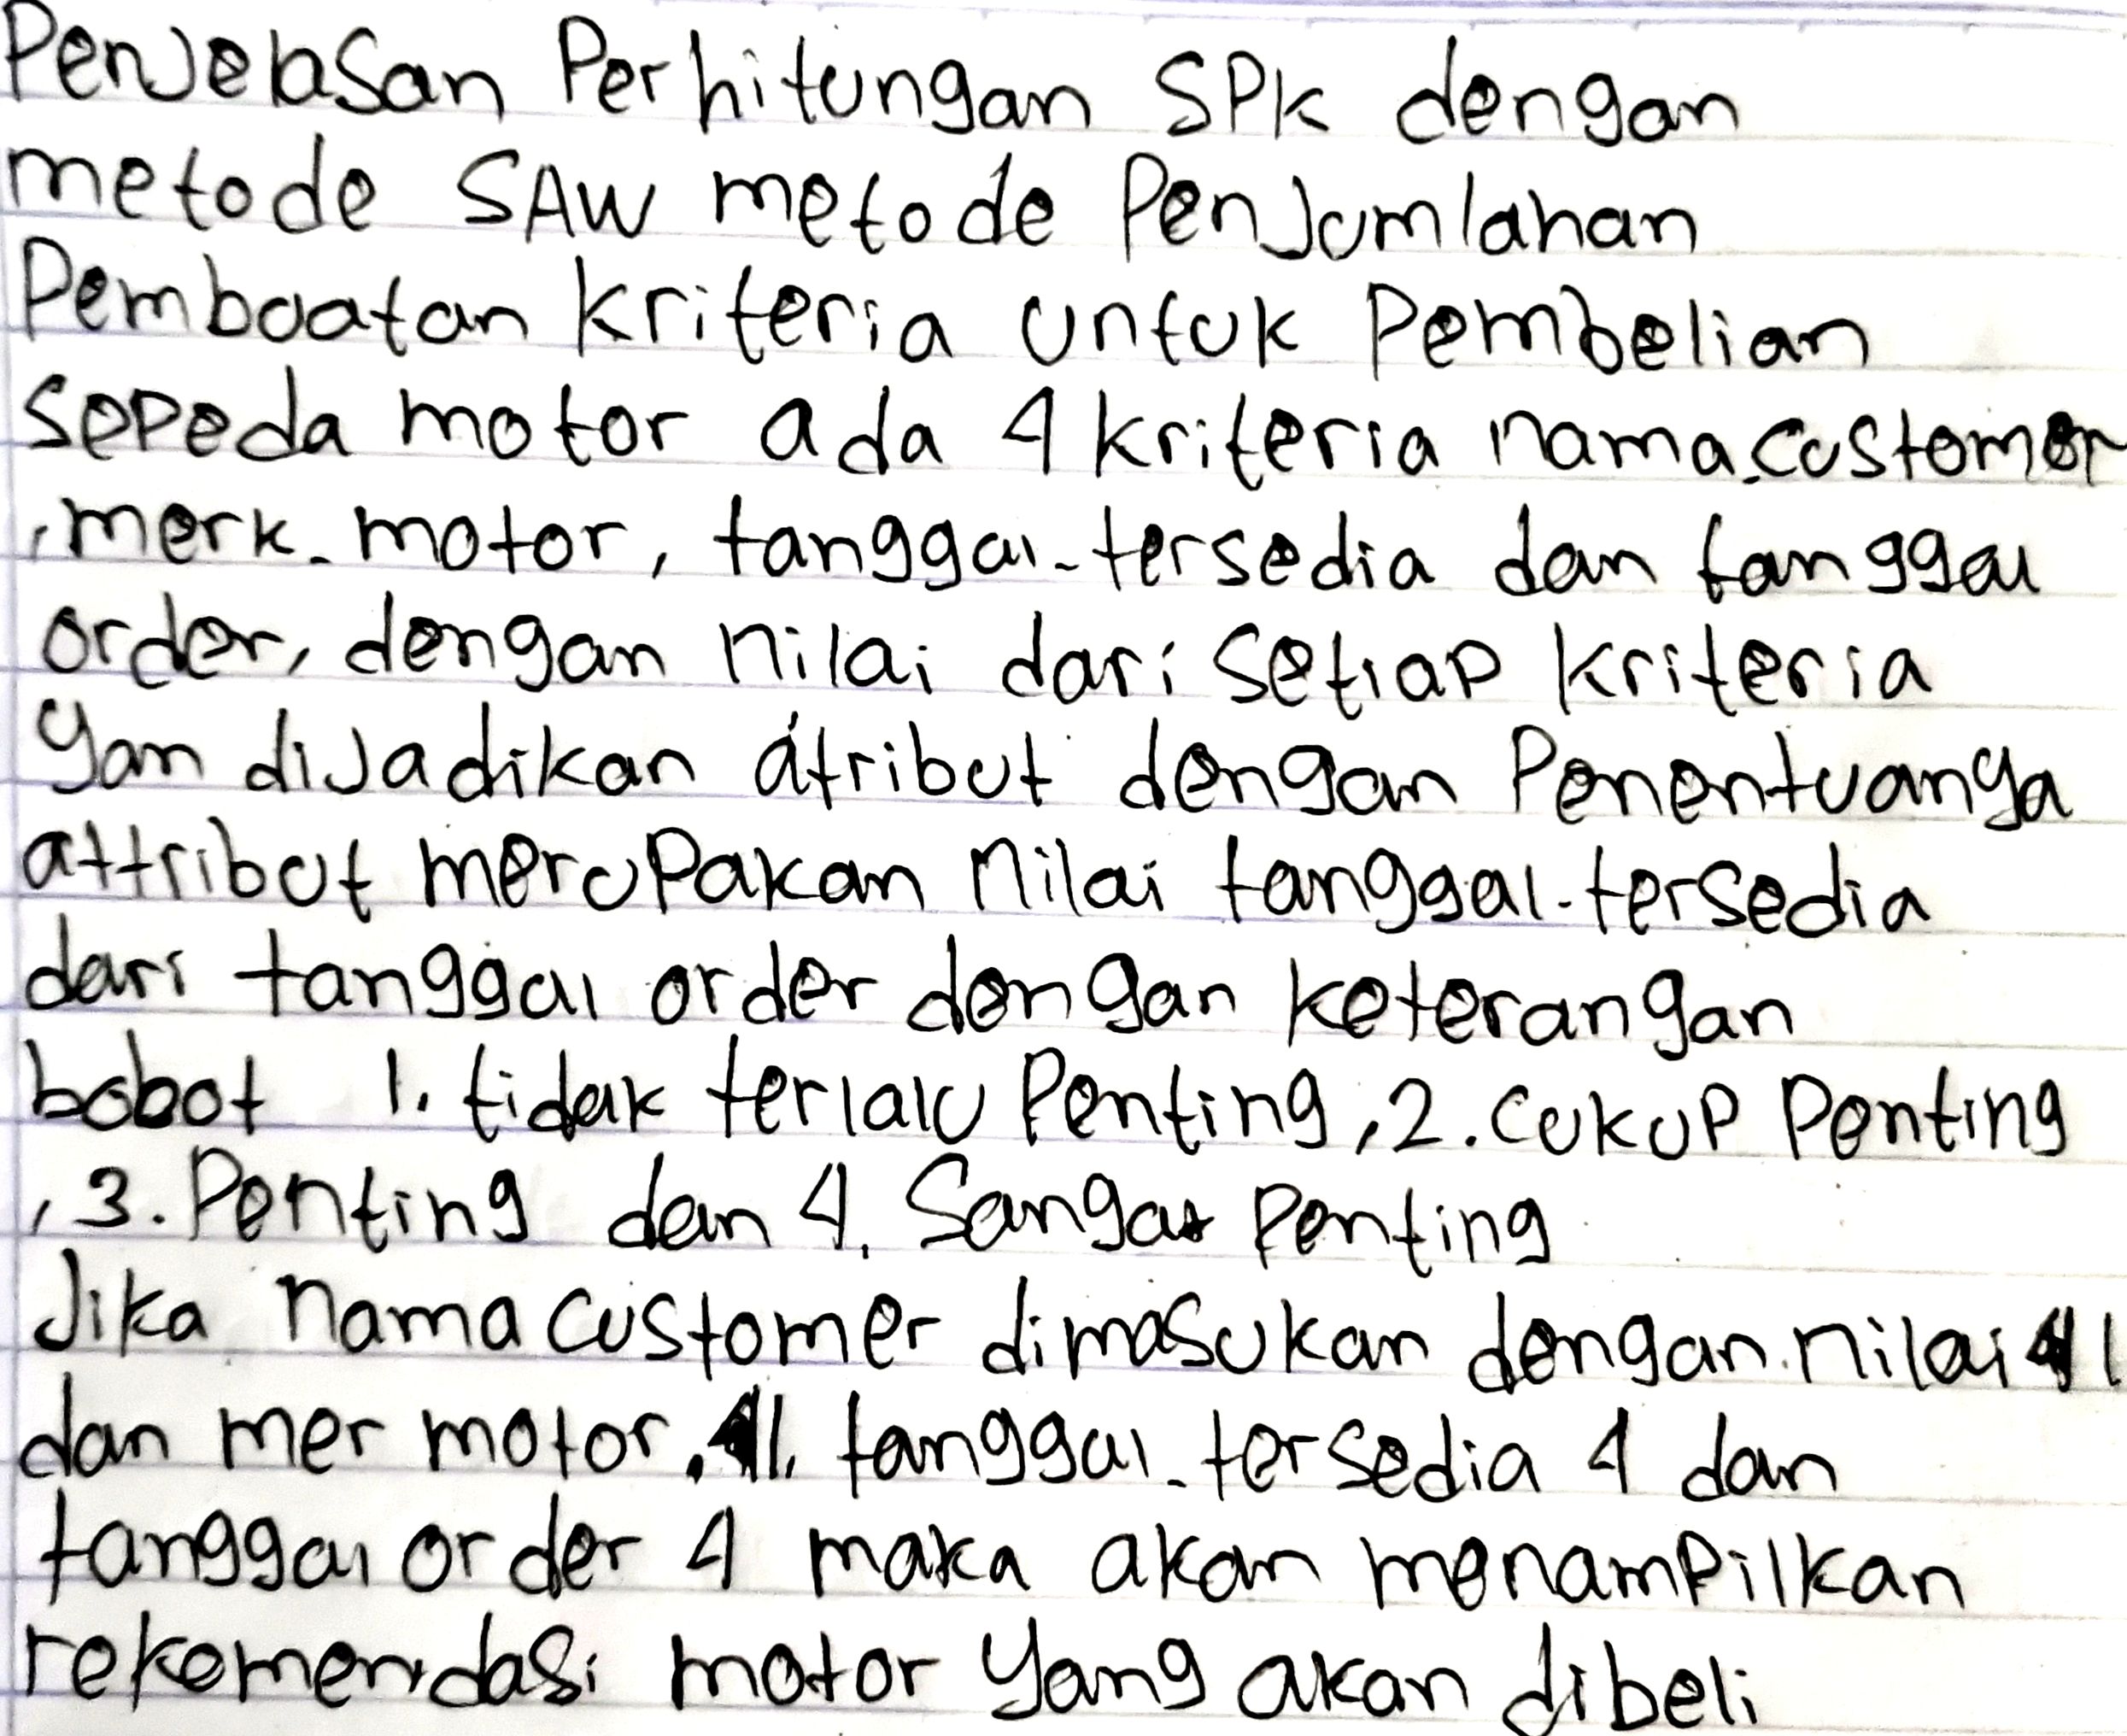 Penjelasan Perhitungan SPK dengan
metode SAW metode Penjumlahan
Pembuatan kriteria untuk Pembelian
sepeda motor ada 4 kriteria nama_customer
, merk_motor, tanggal_tersedia dan tanggal
order, dengan nilai dari setiap kriteria
yan dijadikan atribut dengan Penentuanya
attribut merupakan nilai tanggal_tersedia
dari tanggal order dengan keterangan
bobot 1. tidak terlalu Penting, 2. cukup Penting
, 3. Penting dan 4. Sangat Penting
Jika nama customer dimasukan dengan nilai 1
dan mer motor, 1, tanggal_tersedia 4 dan
tanggal order 4 maka akan menampilkan
rekomendasi motor yang akan dibeli